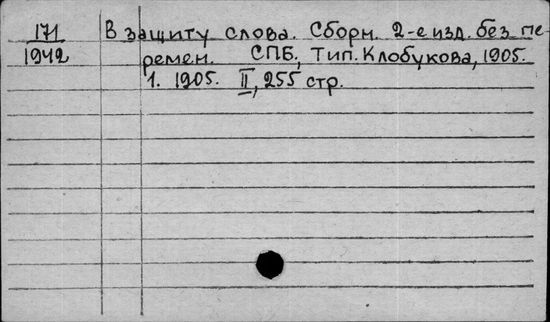 171
1942
В защиту слова. Сборн. 2-е изд. без пе-
ремен. СПБ, Тип. Клобукова, 1905.
1. 1905. II, 255 стр.